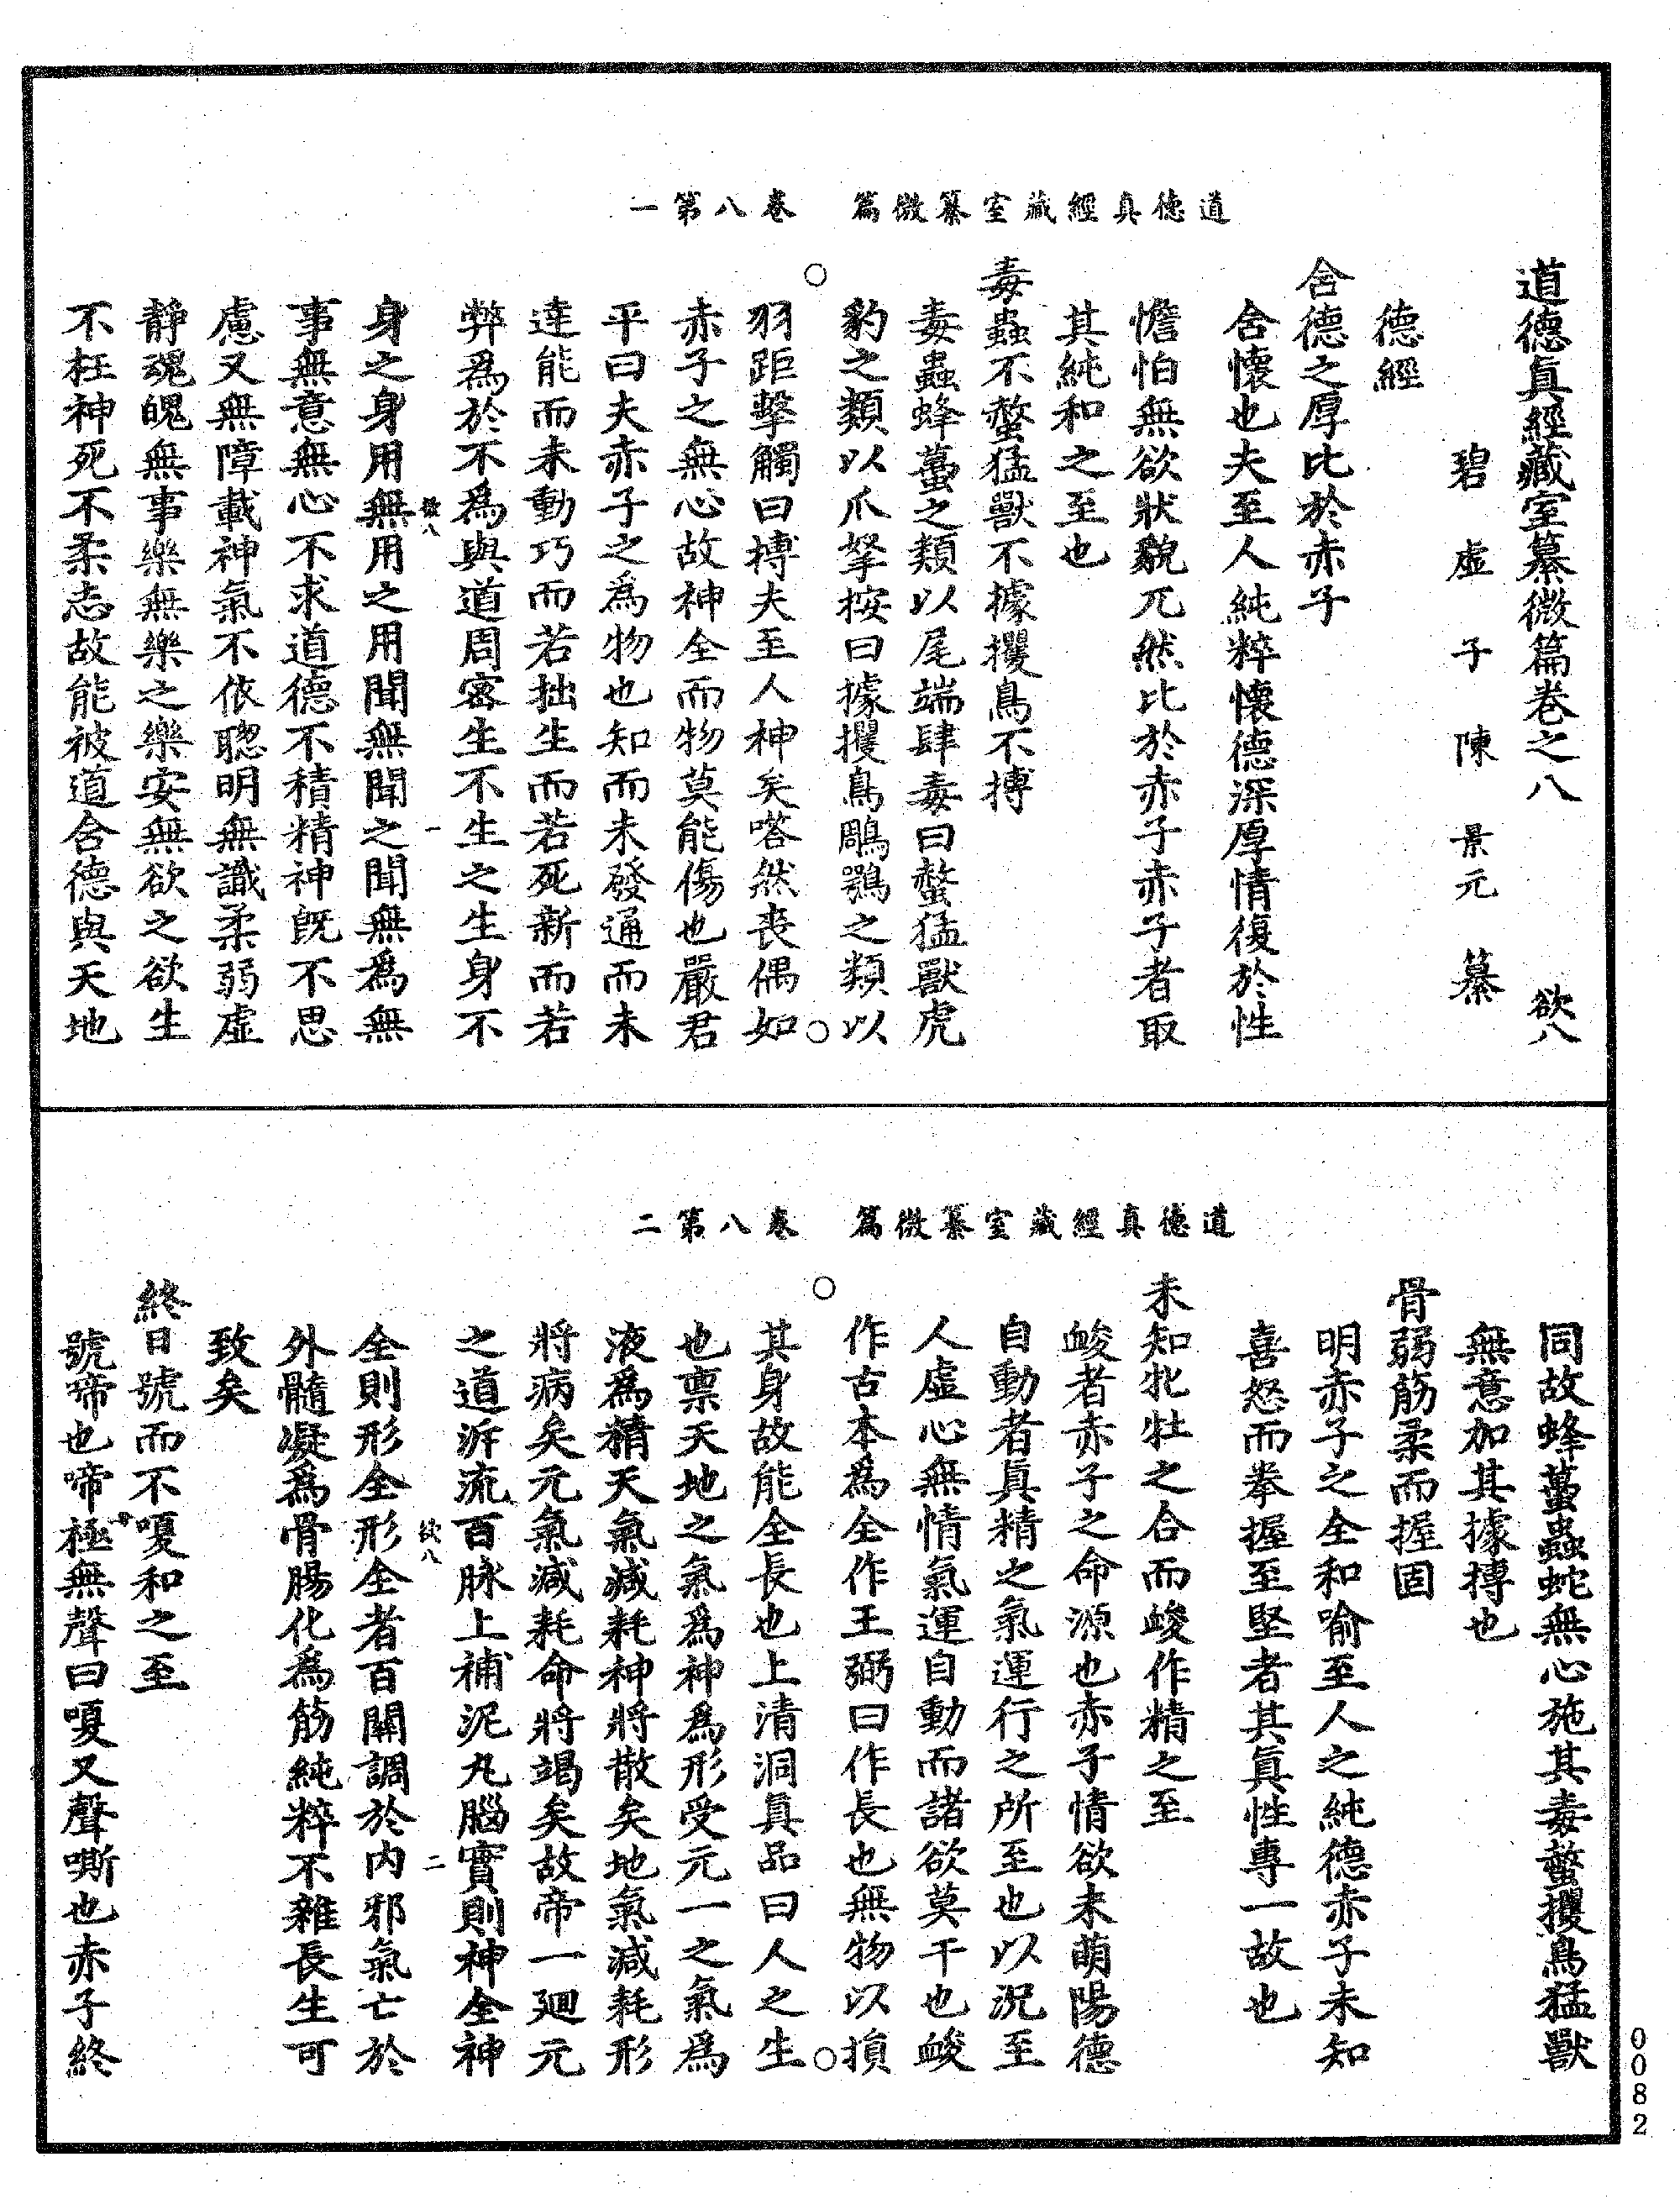 道德真經藏室纂微篇　卷八第一
道德眞經藏室纂微篇卷之八　欲八
碧虛子陳景元纂
德經
含德之厚比於赤子
含懷也夫至人純粹懷德深厚情復於性
憺怕無欲狀貌兀然比於赤子赤子者取
其純和之至也
毒蟲不螫猛獸不據攫鳥不搏
毒蟲蜂蠆之類以尾端肆毒曰螫猛獸虎
豹之類以爪拏按曰據攫鳥鵰鶚之類以
羽距擊觸曰搏夫至人神矣嗒然喪偶如
赤子之無心故神全而物莫能傷也嚴君
平曰夫赤子之爲物也知而未發通而未
達能而未動巧而若拙生而若死新而若
弊爲於不爲與道周密生不生之生身不
欲八　一
身之身用無用之用聞無聞之聞無爲無
事無意無心不求道德不積精神旣不思
慮又無障載神氣不依聰明無識柔弱虛
靜魂魄無事樂無樂之樂安無欲之欲生
不枉神死不柔志故能被道含德與天地
道德真經藏室纂微篇　卷八第二
同故蜂蠆蟲蛇無心施其毒螫攫鳥猛獸
無意加其據搏也
骨弱筋柔而握固
明赤子之全和喻至人之純德赤子未知
喜怒而拳握至堅者其眞性專一故也
未知牝牡之合而峻作精之至
䘒者赤子之命源也赤子情欲未萌陽德
自動者眞精之氣運行之所至也以況至
人虛心無情氣運自動而諸欲莫干也䘒
作古本爲全作王弼曰作長也無物以損
其身故能全長也上清洞眞品曰人之生
也禀天地之氣爲神爲形受元一之氣爲
液爲精天氣減耗神將散矣地氣減耗形
將病矣元氣減耗命將竭矣故帝一廻元
之道泝流百脉上補泥丸腦實則神全神
欲八　二
全則形全形全者百關調於內邪氣亡於
外髓凝爲骨腸化爲筋純粹不雜長生可
致矣
終日號而不嗄和之至
號啼也啼極無聲曰嗄又聲嘶也赤子終
0082